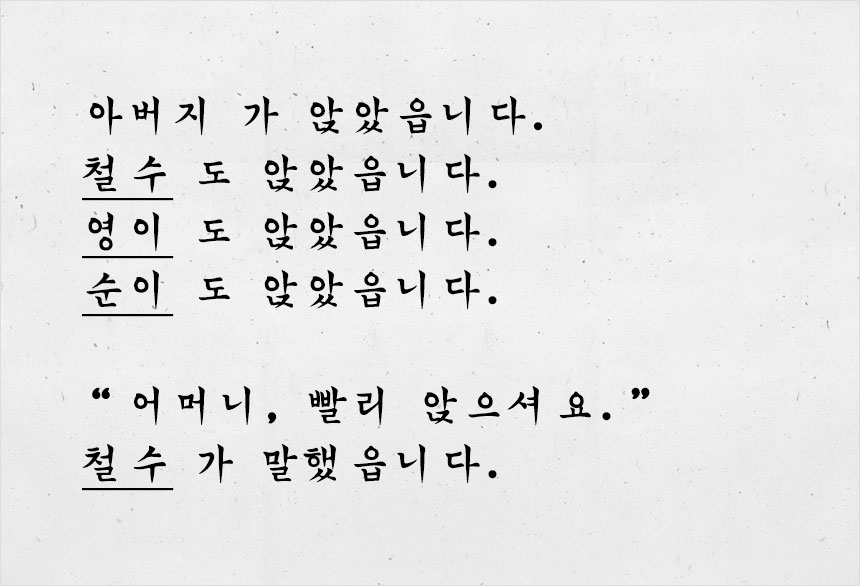 아버지 가 앉았읍니다.
철수 도 앉았읍니다.
영이 도 앉았읍니다.
순이 도 앉았읍니다.
“ 어머니, 빨리 앉으셔요.”
철수 가 말했읍니다.